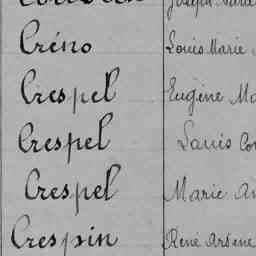 Créno Louis Marie
Crespel Eugène
Crespel Louis
Crespel Marie
Crespin René Arsène